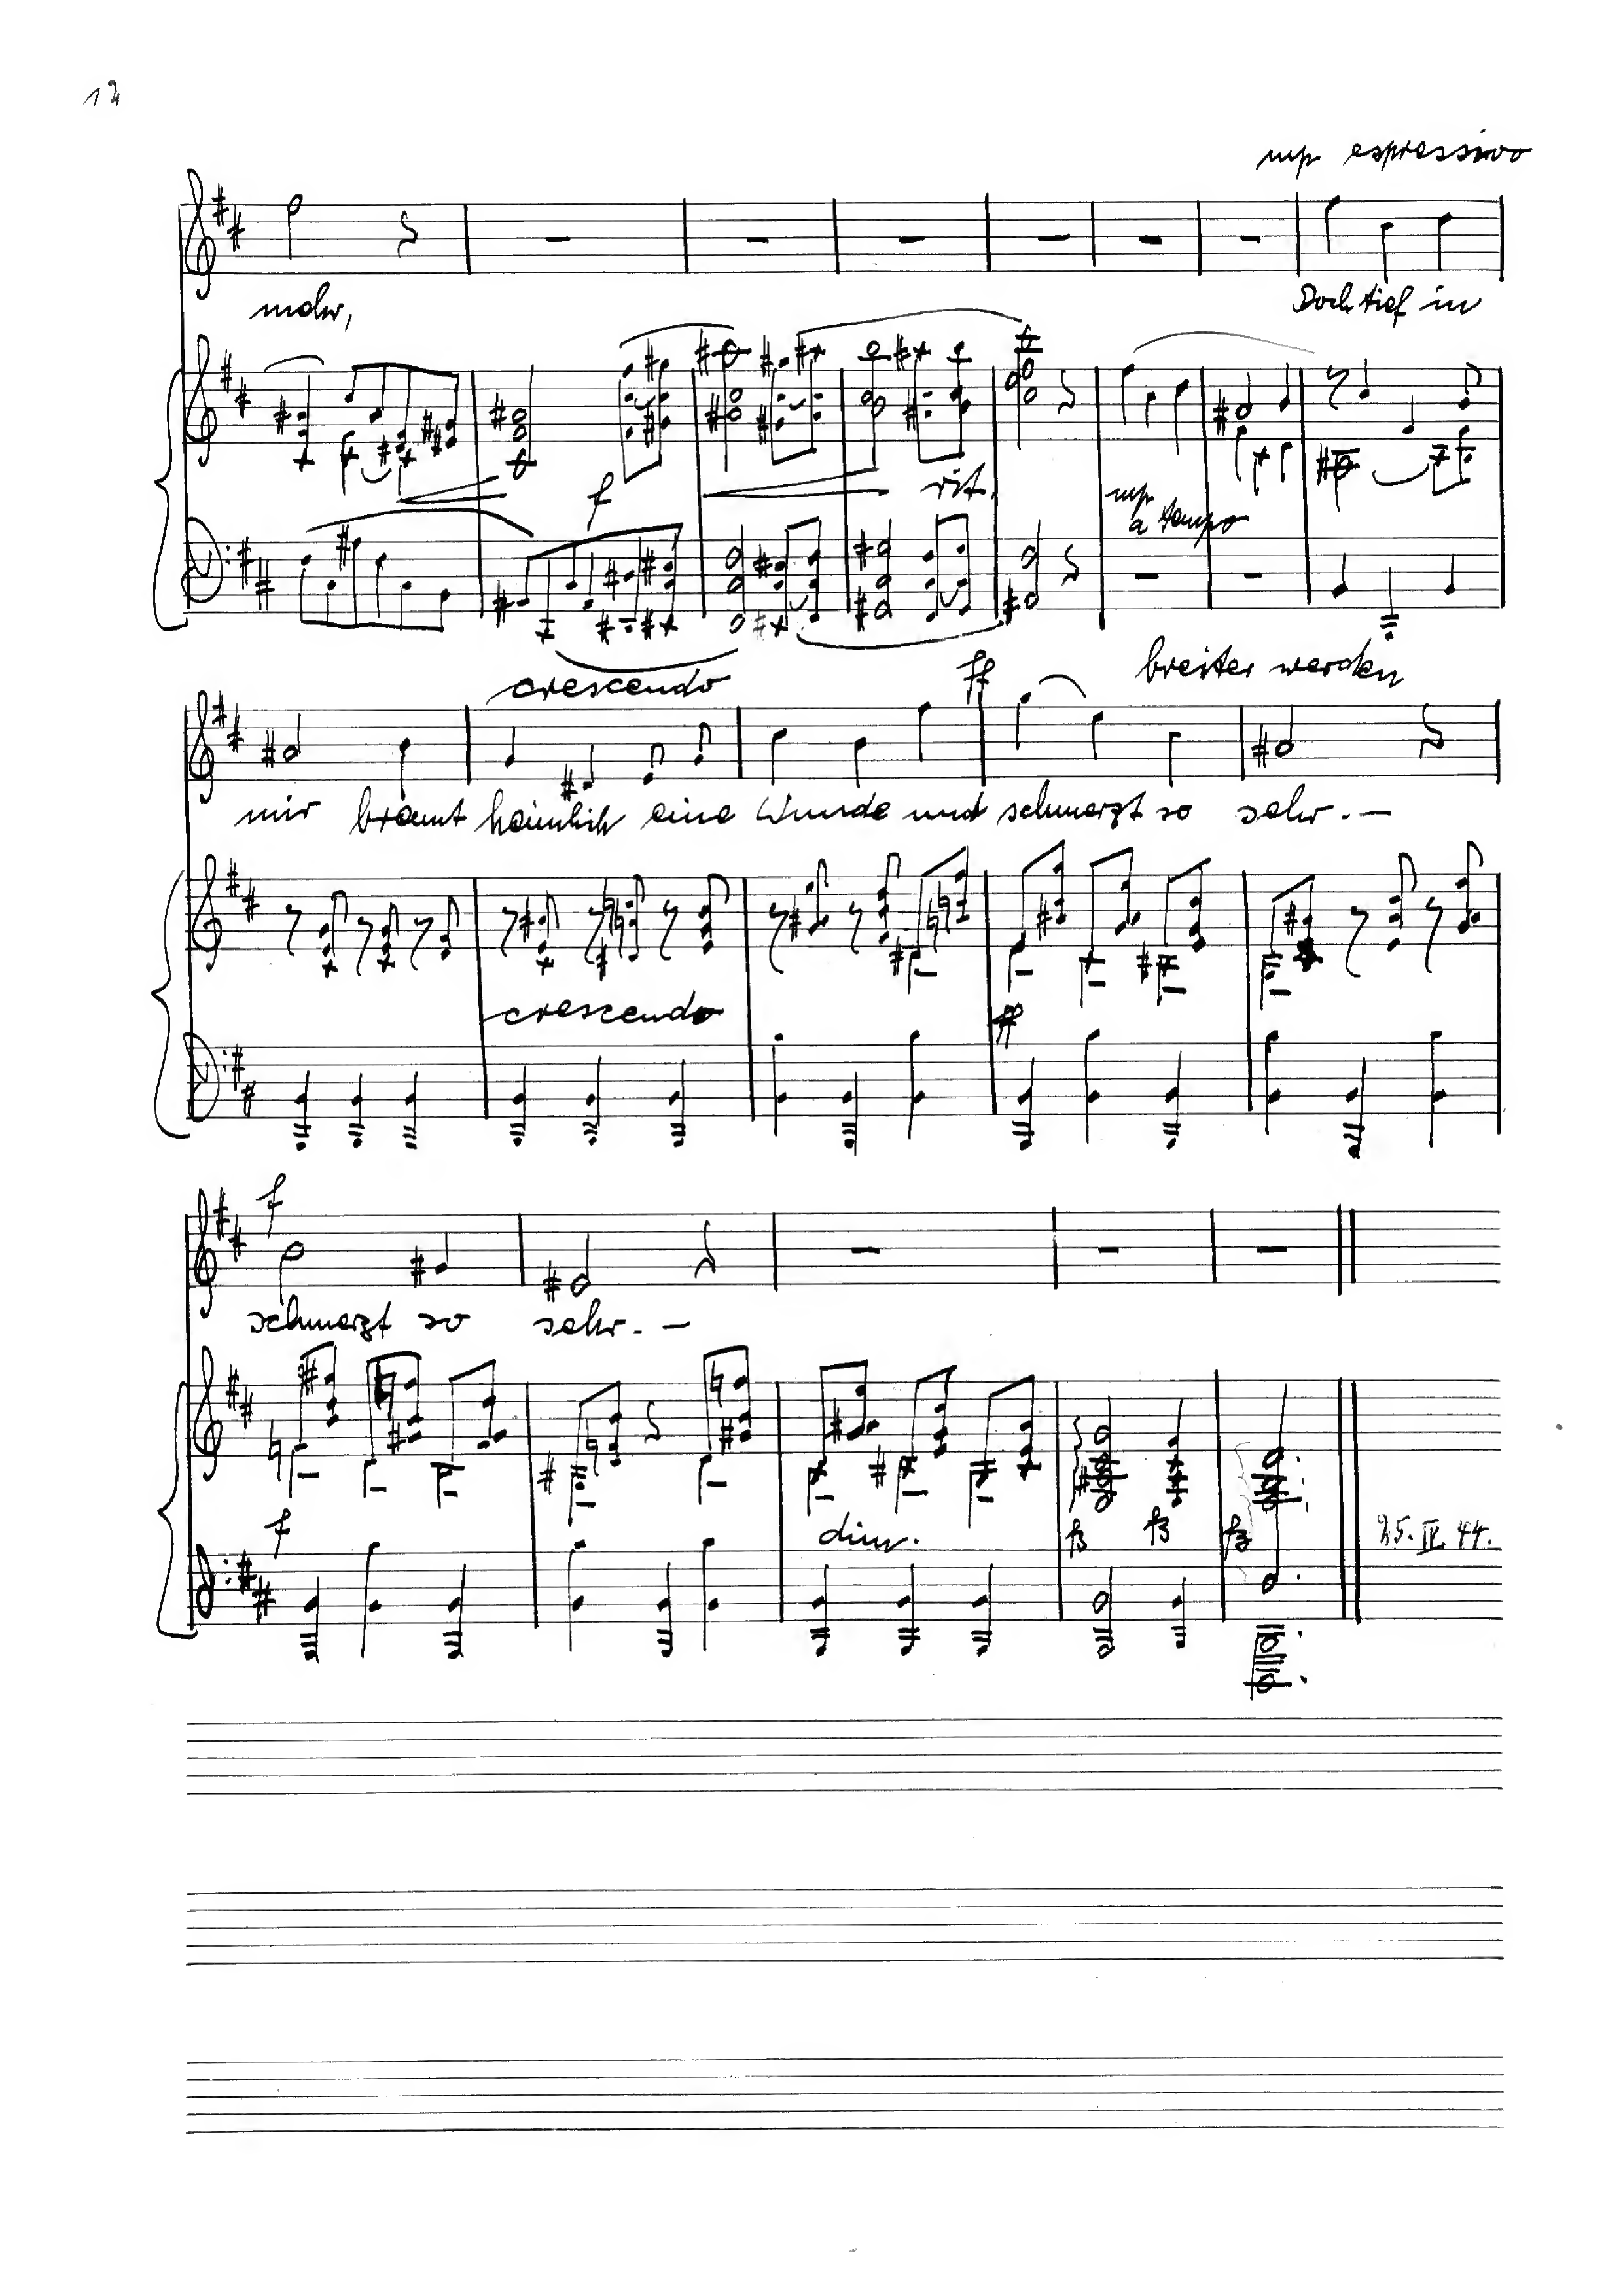 12
mp espressivo
mehr, Doch tief in
f rit. mp
a tempo
crescendo ff breiter werden
mir brennt heimlich eine Wunde und schmerzt so sehr. —
crescendo ff
f
schmerzt so sehr. —
f dim. fz fz fz 25. IV. 44.